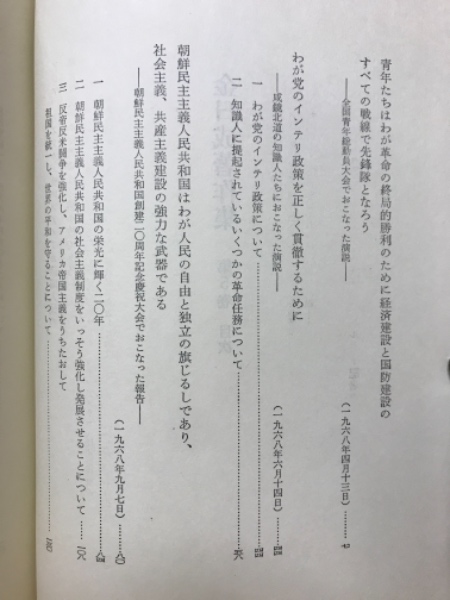 青年たちはわが革命の終局的勝利のために経済建設と国防建設の
すべての戦線で先鋒隊となろう
――全国青年総動員大会でおこなった演説――
(一九六八年四月十三日)……七
わが党のインテリ政策を正しく貫徹するために
――咸鏡北道の知識人たちにおこなった演説――
(一九六八年六月十四日)……四四
一 わが党のインテリ政策について……四四
二 知識人に提起されているいくつかの革命任務について……五八
朝鮮民主主義人民共和国はわが人民の自由と独立の旗じるしであり、
社会主義、共産主義建設の強力な武器である
――朝鮮民主主義人民共和国創建二〇周年記念慶祝大会でおこなった報告――
(一九六八年九月七日)……八〇
一 朝鮮民主主義人民共和国の栄光に輝く二〇年……八四
二 朝鮮民主主義人民共和国の社会主義制度をいっそう強化し発展させることについて……一〇八
三 反帝反米闘争を強化し、アメリカ帝国主義をうちたおして
祖国を統一し、世界の平和を守ることについて……